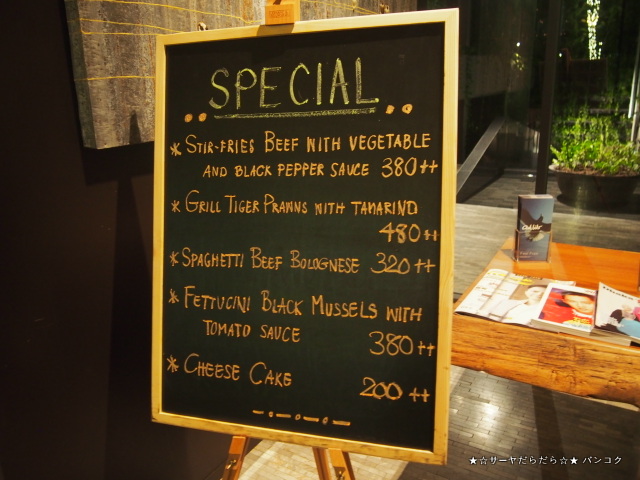 SPECIAL
* STIR-FRIES BEEF WITH VEGETABLE
AND BLACK PEPPER SAUCE 380++
* GRILL TIGER PRAWNS WITH TAMARIND
480++
* SPAGHETTI BEEF BOLOGNESE 320++
* FETTUCINI BLACK MUSSELS WITH
TOMATO SAUCE
380++
* CHEESE CAKE
200++
★☆サーヤだらだら☆★ バンコク